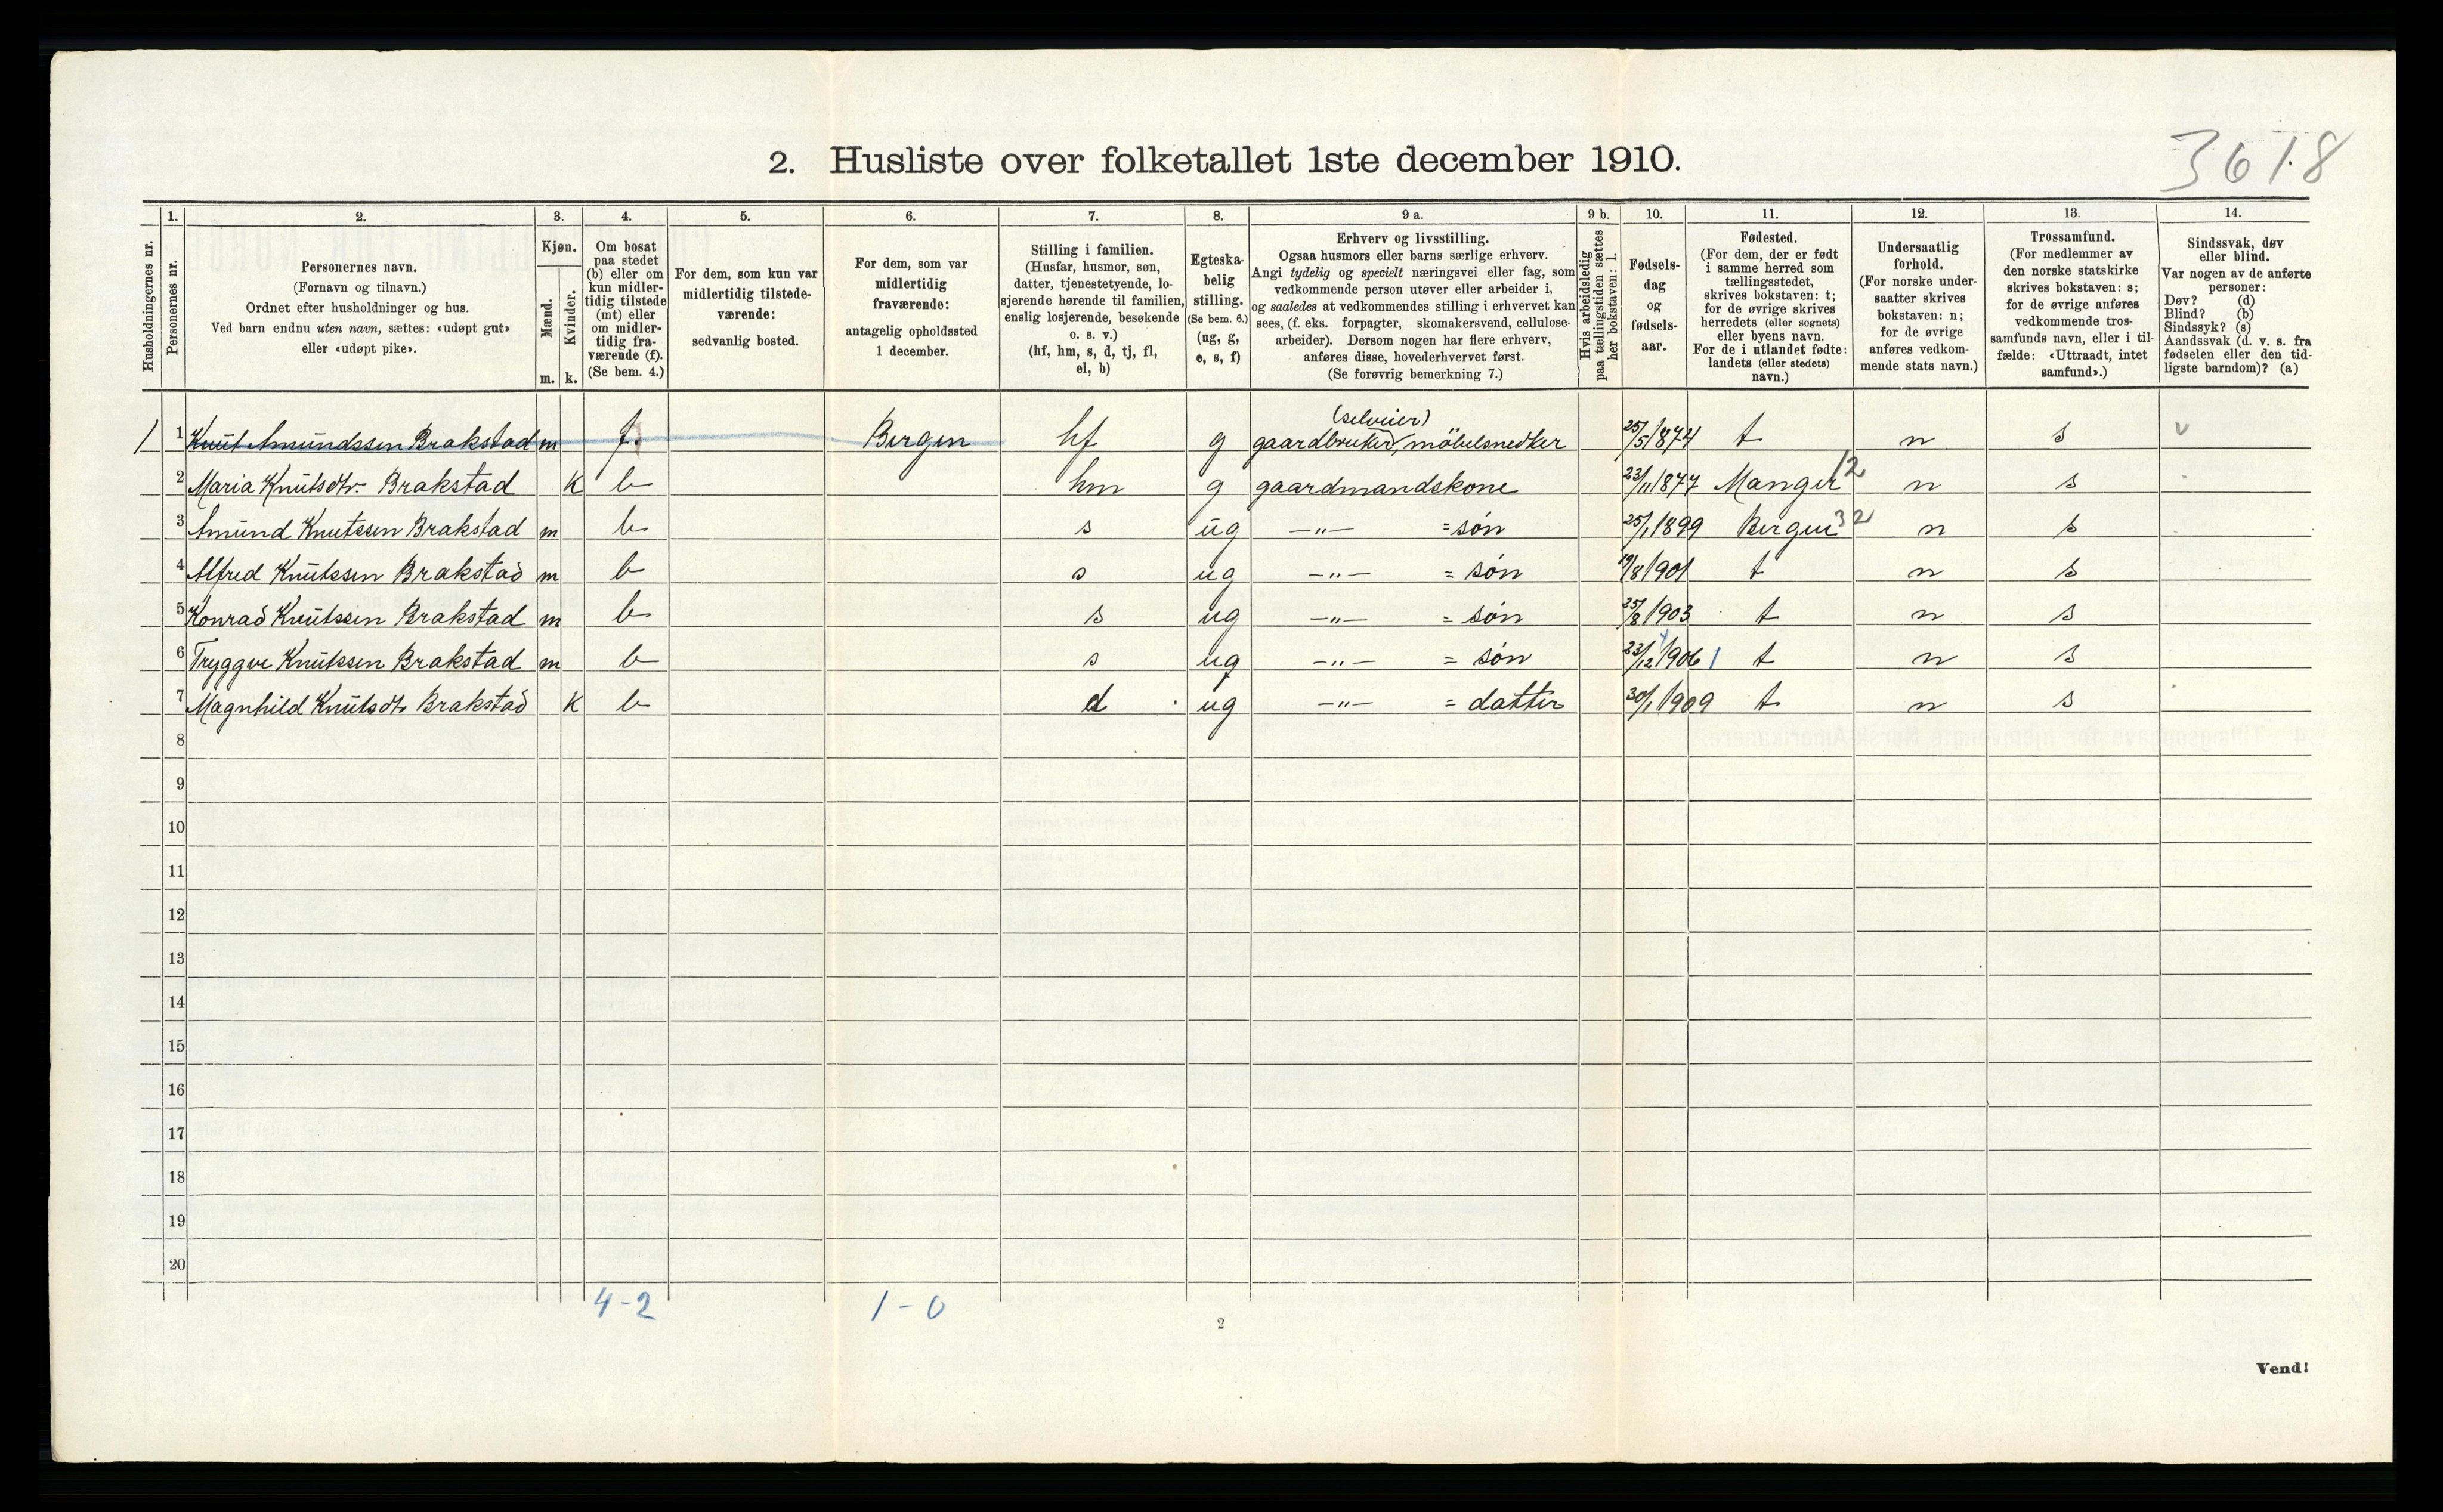 3618
2. Husliste over folketallet 1ste december 1910.
1. 2. 3. 4. 5. 6. 7. 8. 9 a. 9 b. 10. 11. 12. 13. 14.
Husholdningernes nr.
Personernes nr.
Personernes navn.
(Fornavn og tilnavn.)
Ordnet efter husholdninger og hus.
Ved barn endnu uten navn, sættes: «udøpt gut»
eller «udøpt pike».
Kjøn.
Mænd.
Kvinder.
m. k.
Om bosat
paa stedet
(b) eller om
kun midler-
tidig tilstede
(mt) eller
om midler-
tidig fra-
værende (f).
(Se bem. 4.)
For dem, som kun var
midlertidig tilstede-
værende:
sedvanlig bosted.
For dem, som var
midlertidig
fraværende:
antagelig opholdssted
1 december.
Stilling i familien.
(Husfar, husmor, søn,
datter, tjenestetyende, lo-
sjerende hørende til familien,
enslig losjerende, besøkende
o. s. v.)
(hf, hm, s, d, tj, fl,
el, b)
Egteska-
belig
stilling.
(Se bem. 6.)
(ug, g,
e, s, f)
Erhverv og livsstilling.
Ogsaa husmors eller barns særlige erhverv.
Angi tydelig og specielt næringsvei eller fag, som
vedkommende person utøver eller arbeider i,
og saaledes at vedkommendes stilling i erhvervet kan
sees, (f. eks. forpagter, skomakersvend, cellulose-
arbeider). Dersom nogen har flere erhverv,
anføres disse, hovederhvervet først.
(Se forøvrig bemerkning 7.)
Hvis arbeidsledig
paa tællingstiden sættes
her bokstaven: l.
Fødsels-
dag
og
fødsels-
aar.
Fødested.
(For dem, der er født
i samme herred som
tællingsstedet,
skrives bokstaven: t;
for de øvrige skrives
herredets (eller sognets)
eller byens navn.
For de i utlandet fødte:
landets (eller stedets)
navn.)
Undersaatlig
forhold.
(For norske under-
saatter skrives
bokstaven: n;
for de øvrige
anføres vedkom-
mende stats navn.)
Trossamfund.
(For medlemmer av
den norske statskirke
skrives bokstaven: s;
for de øvrige anføres
vedkommende tros-
samfunds navn, eller i til-
fælde: «Uttraadt, intet
samfund».)
Sindssvak, døv
eller blind.
Var nogen av de anførte
personer:
Døv? (d)
Blind? (b)
Sindssyk? (s)
Aandssvak (d. v. s. fra
fødselen eller den tid-
ligste barndom)? (a)
(selveier)
1 1 Knut Amundssen Brakstad m f. Bergen hf g gaardbruker, möbelsnedker 25/5 1874 t n s v
2 Maria Knutsdtr. Brakstad k b hm g gaardmandskone 23/11 1877 Manger 12 n s
3 Amund Knutssen Brakstad m b s ug -"- =søn 25/1 1899 Bergen 32 n s
4 Alfred Knutssen Brakstad m b s ug -"- = søn 19/8 1901 t n s
5 Konrad Knutssen Brakstad m b s ug -"- = søn 25/8 1903 t n s
6 Tryggve Knutssen Brakstad m b s ug -"- = søn 23/12 1906 1 t n s
7 Magnhild Knutsdt. Brakstad k b d ug -"- = datter 30/1 1909 t n s
8
9
10
11
12
13
14
15
16
17
18
19
20
4-2 1-0
2
Vend!